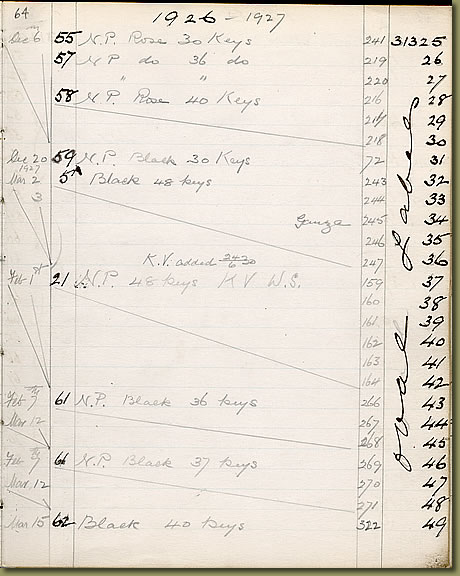 64 1926 - 1927
Dec 6 55 N.P. Rose 30 Keys 241 31325
57 N.P do 36 do 219 26
" " 220 27
58 N.P. Rose 40 Keys 216 28
217 29
218 30
Dec 20 59 N.P. Black 30 Keys 72 31
1927
Mar 2 5 Black 48 keys 243 32
3 244 33
Ganza 245 34
246 35
K.V. added 24/6 30 247 36
Feb 1st 21 N.P. 48 keys K V W.S. 159 37
160 38
161 39
162 40
163 41
164 42
Feb 7 61 N.P. Black 36 keys 266 43
Mar 12 267 44
268 45
Feb 7 66 N.P. Black 37 keys 269 46
Mar. 12 270 47
271 48
Mar 15 62 Black 40 keys 322 49
Oval Labels